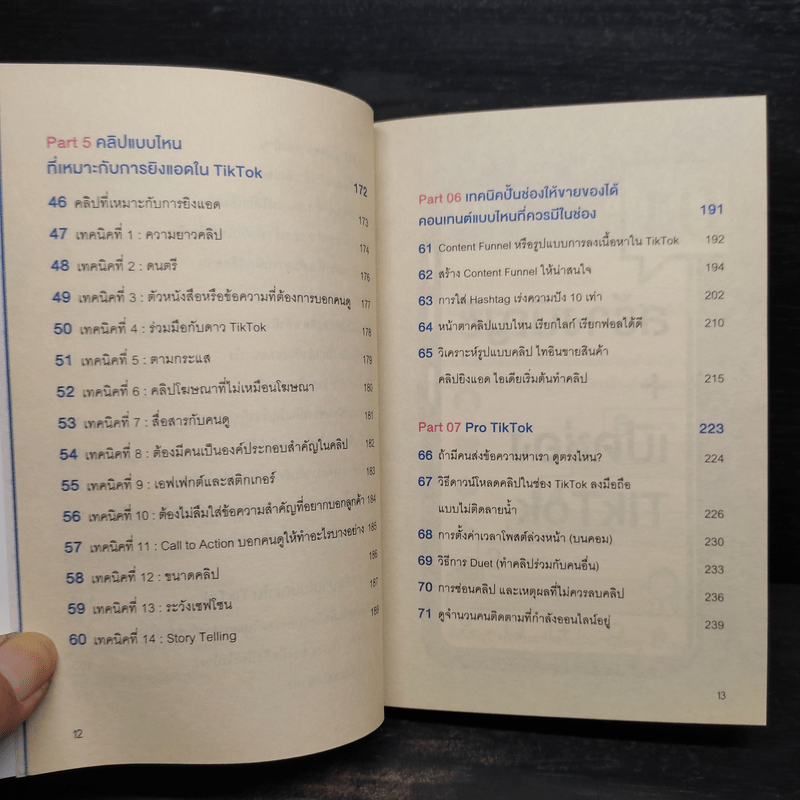 Part 5 คลิปแบบไหน
ที่เหมาะกับการยิงแอดใน TikTok 172
46 คลิปที่เหมาะกับการยิงแอด 173
47 เทคนิคที่ 1 : ความยาวคลิป 174
48 เทคนิคที่ 2 : ดนตรี 176
49 เทคนิคที่ 3 : ตัวหนังสือหรือข้อความที่ต้องการบอกคนดู 177
50 เทคนิคที่ 4 : ร่วมมือกับดาว TikTok 178
51 เทคนิคที่ 5 : ตามกระแส 179
52 เทคนิคที่ 6 : คลิปโฆษณาที่ไม่เหมือนโฆษณา 180
53 เทคนิคที่ 7 : สื่อสารกับคนดู 181
54 เทคนิคที่ 8 : ต้องมีคนเป็นองค์ประกอบสำคัญในคลิป 182
55 เทคนิคที่ 9 : เอฟเฟกต์และสติกเกอร์ 183
56 เทคนิคที่ 10 : ต้องไม่ลืมใส่ข้อความสำคัญที่อยากบอกลูกค้า 184
57 เทคนิคที่ 11 : Call to Action บอกคนดูให้ทำอะไรบางอย่าง 185
58 เทคนิคที่ 12 : ขนาดคลิป 186
59 เทคนิคที่ 13 : ระวังเซฟโซน 187
60 เทคนิคที่ 14 : Story Telling
12
Part 06 เทคนิคปั้นช่องให้ขายของได้
คอนเทนต์แบบไหนที่ควรมีในช่อง 191
61 Content Funnel หรือรูปแบบการลงเนื้อหาใน TikTok 192
62 สร้าง Content Funnel ให้น่าสนใจ 194
63 การใส่ Hashtag เร่งความปัง 10 เท่า 202
64 หน้าตาคลิปแบบไหน เรียกไลก์ เรียกฟอลได้ดี 210
65 วิเคราะห์รูปแบบคลิป ไทอินขายสินค้า
คลิปยิงแอด ไอเดียเริ่มต้นทำคลิป 215
Part 07 Pro TikTok 223
66 ถ้ามีคนส่งข้อความหาเรา ดูตรงไหน? 224
67 วิธีดาวน์โหลดคลิปในช่อง TikTok ลงมือถือ
แบบไม่ติดลายน้ำ 226
68 การตั้งค่าเวลาโพสต์ล่วงหน้า (บนคอม) 230
69 วิธีการ Duet (ทำคลิปร่วมกับคนอื่น) 233
70 การซ่อนคลิป และเหตุผลที่ไม่ควรลบคลิป 236
71 ดูจำนวนคนติดตามที่กำลังออนไลน์อยู่ 239
13